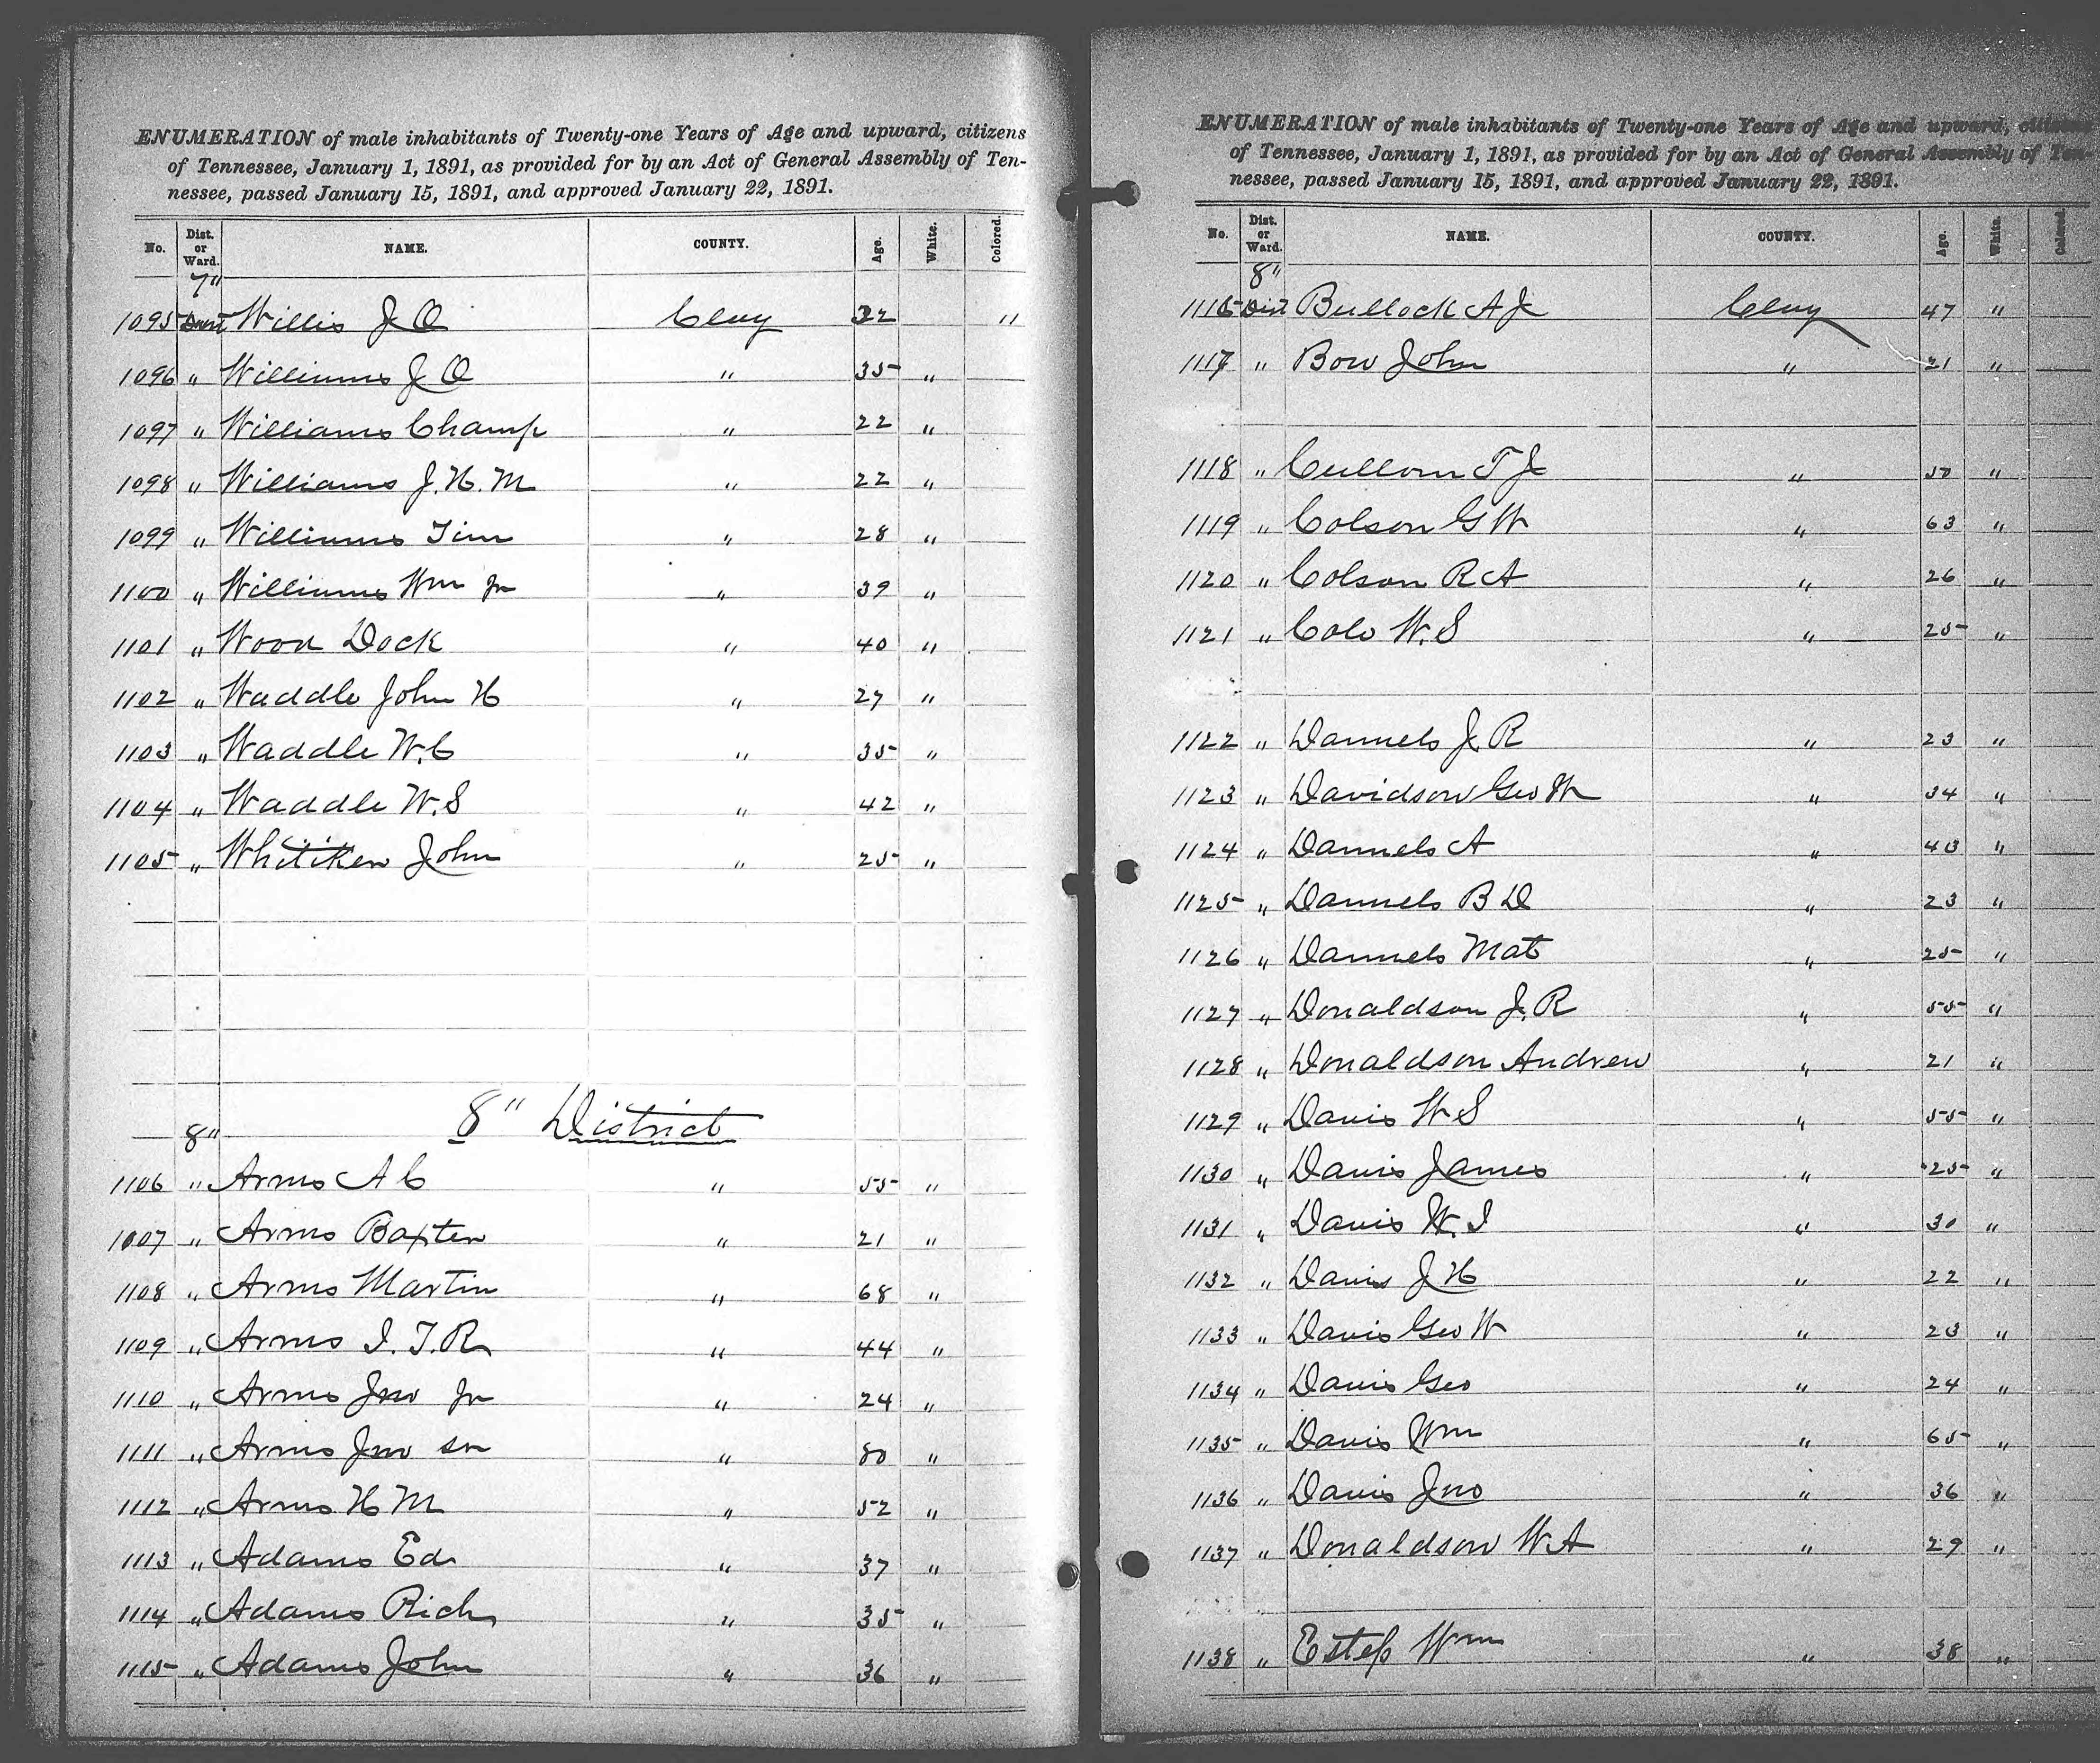 ENUMERATION of male inhabitants of Twenty-one Years of Age and upward, citizens
of Tennessee, January 1, 1891, as provided for by an Act of General Assembly of Ten-
nessee, passed January 15, 1891, and approved January 22, 1891.
No. Dist. or Ward. NAME. COUNTY. Age. White. Colored.
7"
1095 Dist Willis J O Clay 32 "
1096 " Williams J O " 35 "
1097 " Williams Champ " 22 "
1098 " Williams J. H. M " 22 "
1099 " Williams Tim " 28 "
1100 " Williams Wm Jr " 39 "
1101 " Wood Dock " 40 "
1102 " Waddle John H " 27 "
1103 " Waddle W. C " 35 "
1104 " Waddle W. S " 42 "
1105 " Whitiken John " 25 "
8" 8" District
1106 " Arms A C " 55 "
1007 " Arms Baxter " 21 "
1108 " Arms Martin " 68 "
1109 " Arms I. T. R " 44 "
1110 " Arms Jno Jr " 24 "
1111 " Arms Jno Sr " 80 "
1112 " Arms H M " 52 "
1113 " Adams Ed " 37 "
1114 " Adams Rich " 35 "
1115 " Adams John " 36 "
ENUMERATION of male inhabitants of Twenty-one Years of Age and upward, citizens
of Tennessee, January 1, 1891, as provided for by an Act of General Assembly of Ten-
nessee, passed January 15, 1891, and approved January 22, 1891.
No. Dist. or Ward. NAME. COUNTY. Age. White. Colored.
8"
1116 Dist Bullock A J Clay 47 "
1117 " Bow John " 21 "
1118 " Cullom T J " 50 "
1119 " Colson G W " 63 "
1120 " Colson R A " 26 "
1121 " Cole W. S " 25 "
1122 " Dannels J. R " 23 "
1123 " Davidson Geo W " 34 "
1124 " Dannels A " 43 "
1125 " Dannels B D " 23 "
1126 " Dannels Mat " 25 "
1127 " Donaldson J. R " 55 "
1128 " Donaldson Andrew " 21 "
1129 " Davis W S " 55 "
1130 " Davis James " 25 "
1131 " Davis W. I " 30 "
1132 " Davis J H " 22 "
1133 " Davis Geo W " 23 "
1134 " Davis Geo " 24 "
1135 " Davis Wm " 65 "
1136 " Davis Jno " 36 "
1137 " Donaldson W. A " 29 "
1138 " Estep Wm " 38 "